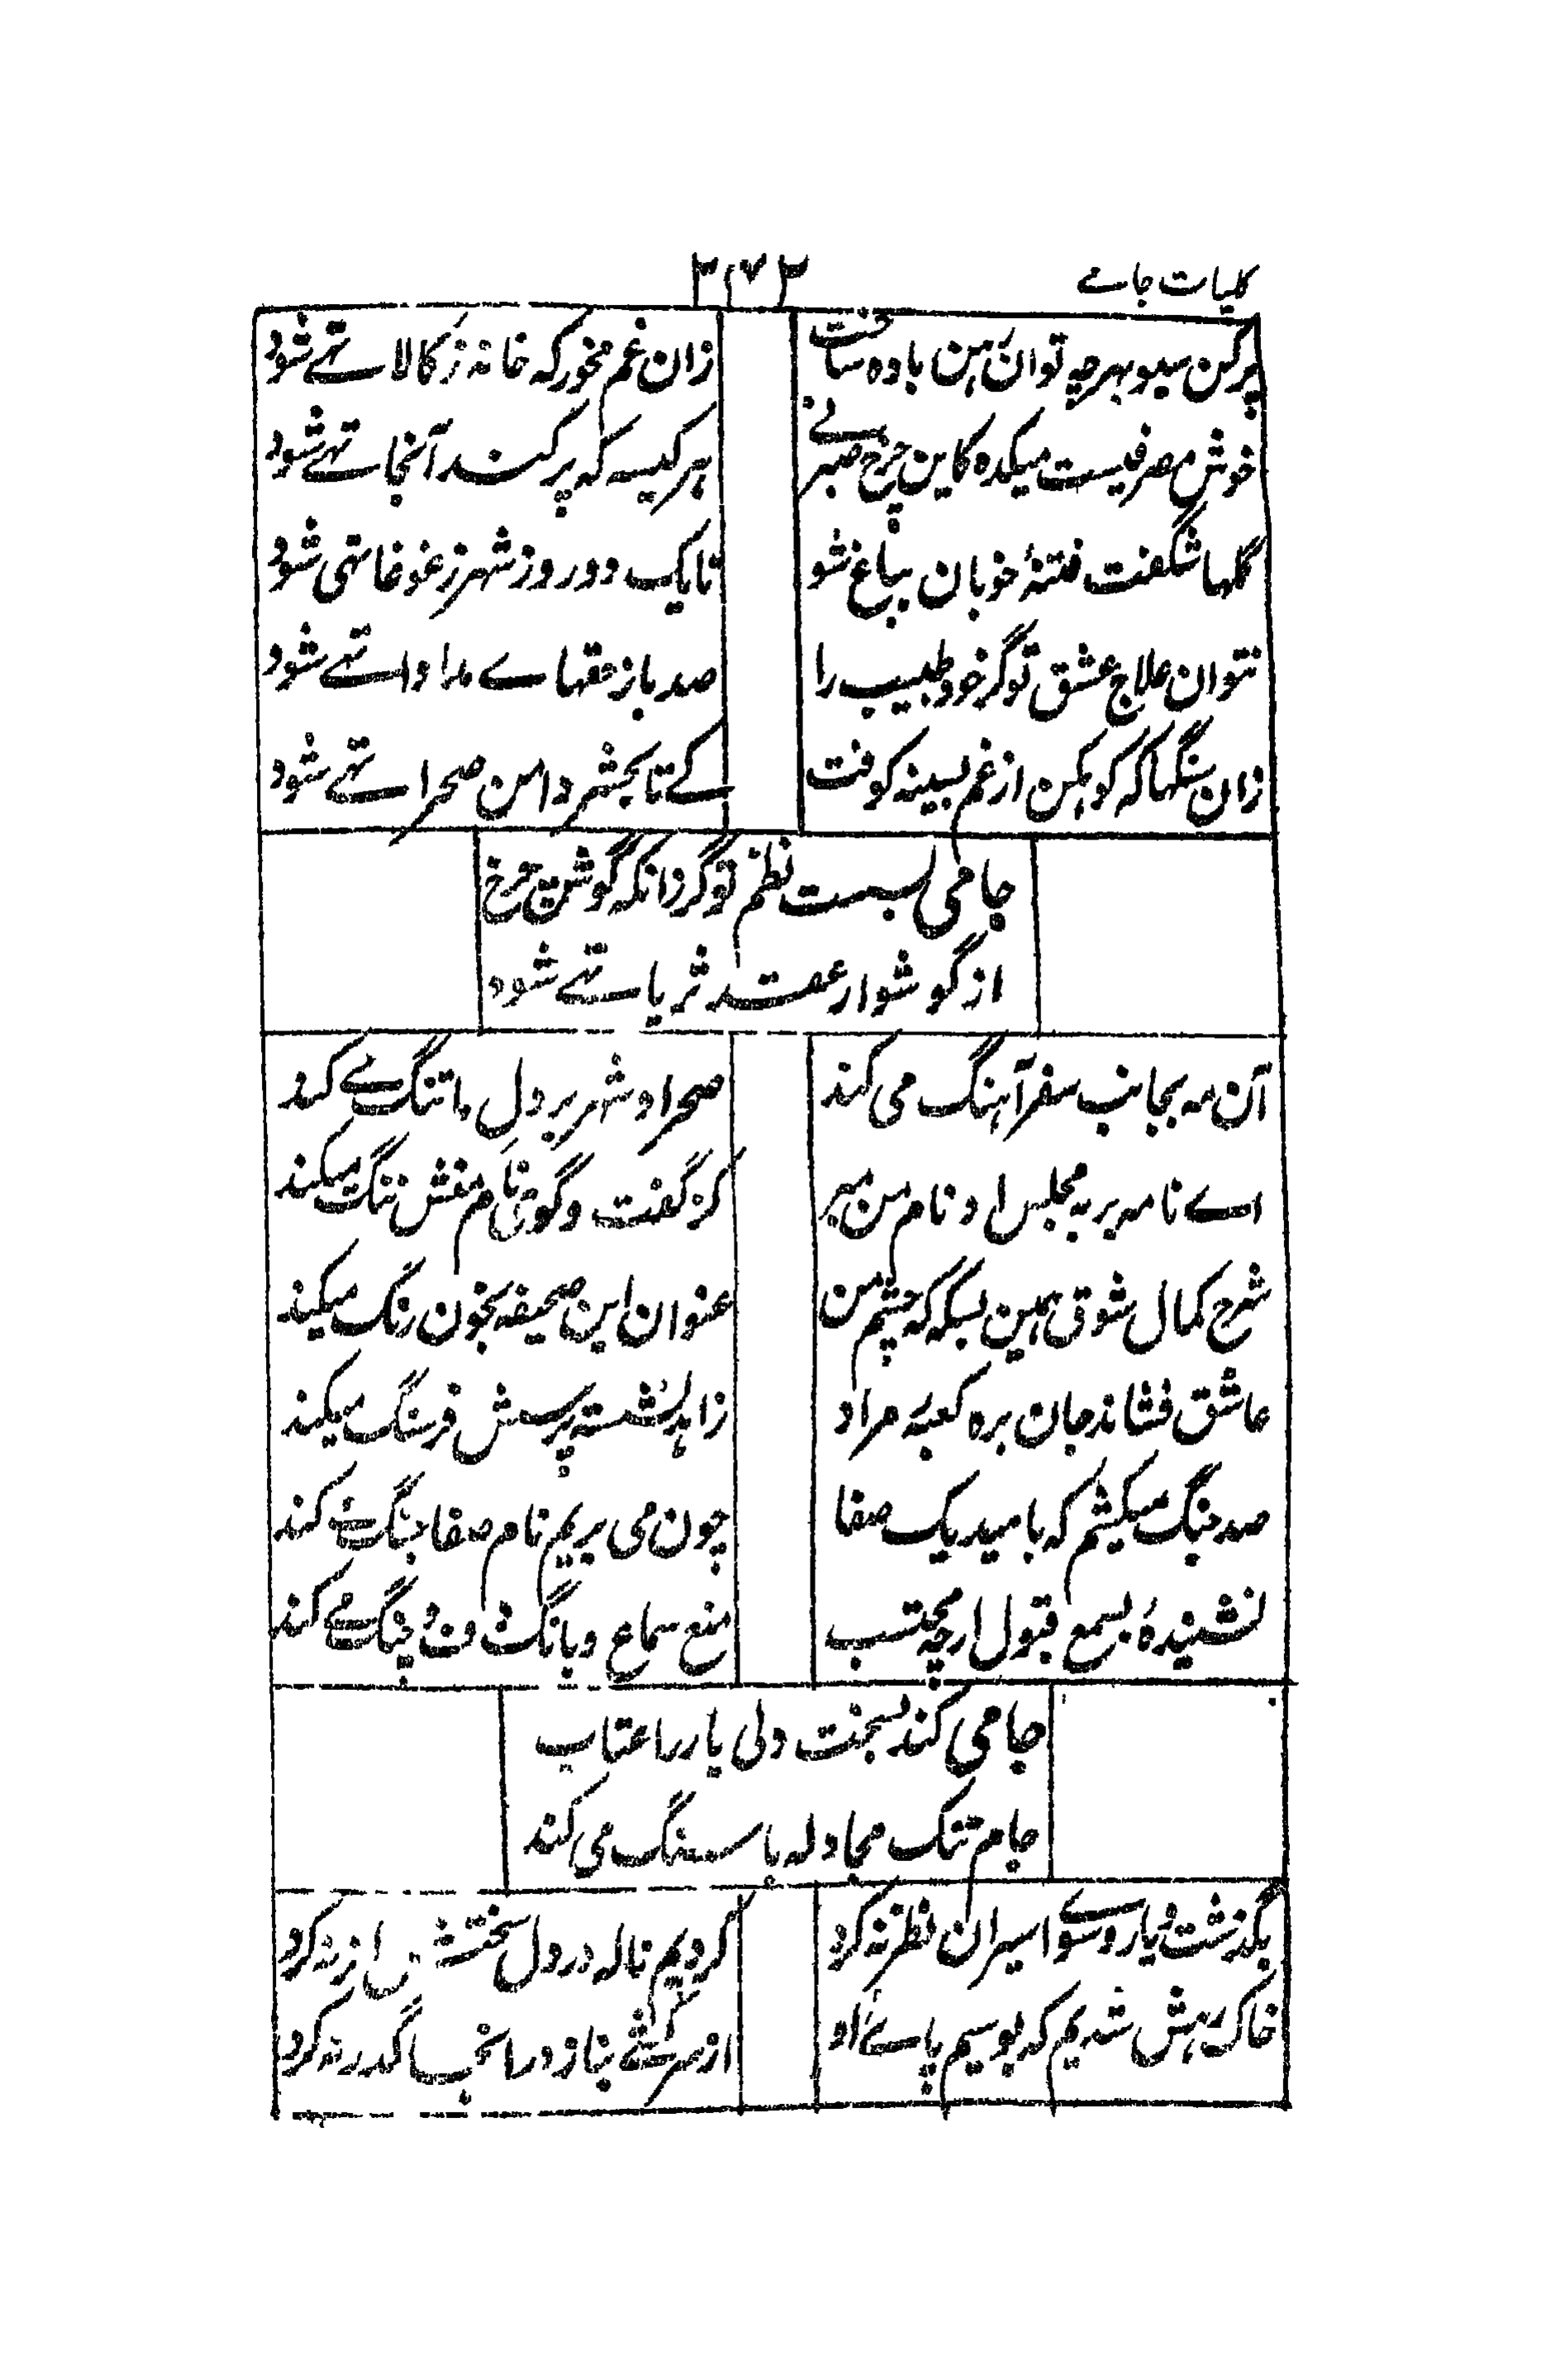 کلیات جامے
۳۷۲
پر کن سبو بهرچه توان رهن باده ساخت
زان غم مخور که خانه ز کالا تهے شود
خوش مصرفیست میکده کاین چرخ صیرفے
هر کیسه که پر کند آنجا تهے شود
گلها شگفت فتنهٔ خوبان بباغ شو
تا یک دو روز شهر ز غوغا تهی شود
نتوان علاج عشق تو گر خود طبیب را
صد بار حقهاے مداوا تهے شود
زان سنگها که کوهکن از غم بسینه کوفت
کے تا بحشر دامن صحرا تهے شود
جامی بست نظم تو گر زانکه گوش چرخ
از گوشوار عقد ثریا تهے شود
آن مه بجانب سفر آهنگ می کند
صحرا و شهر بر دل ما تنگ مے کند
اے نامه بر به مجلس او نام من مبر
کز گفت و گوی نام منش ننگ میکند
شرح کمال شوق همین بسکه که چشم من
عنوان این صحیفه بخون رنگ میکند
عاشق فشاند جان بره کعبهٔ مراد
زاهد نشسته پرسش فرسنگ میکند
صد جنگ میکشم که بامید یک صفا
چون می بریم نام صفا جنگ مے کند
نشنیدهٔ بسمع قبول ار چه محتسب
منع سماع و بانگ دف و چنگ مے کند
جامی کند بسخت دلی یار را عتاب
جام تنک مجادله با سنگ می کند
بگذشت یار و سوے اسیران نظر نه کرد
کردیم ناله در دل سختش اثر نه کرد
خاک رهش شدیم که بوسیم پاے او
از سرکشے بناز و را نجا گذر نه کرد